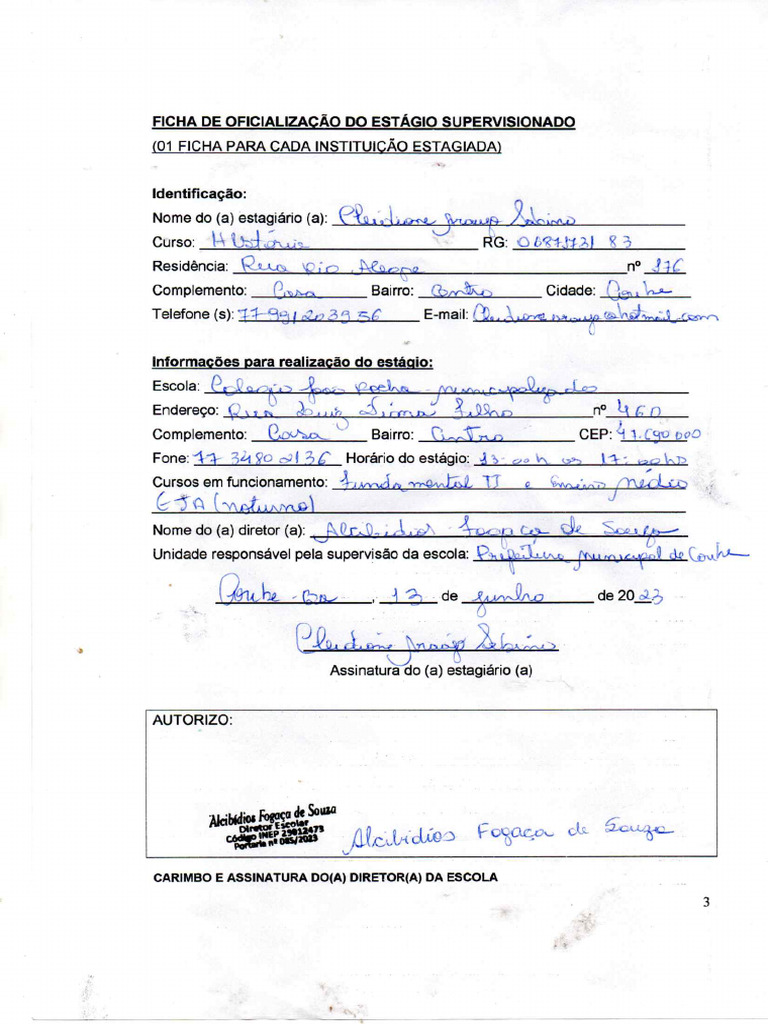 FICHA DE OFICIALIZAÇÃO DO ESTÁGIO SUPERVISIONADO
(01 FICHA PARA CADA INSTITUIÇÃO ESTAGIADA)
Identificação:
Nome do (a) estagiário (a): Cleidione Araujo Sabino
Curso: História RG: 0687173183
Residência: Rua Rio Alegre nº 176
Complemento: Casa Bairro: Centro Cidade: Coribe
Telefone (s): 77 991203956 E-mail: Cleidionearaujo@hotmail.com
Informações para realização do estágio:
Escola: Colegio João Rocha municipalizado
Endereço: Rua Luiz Filho nº 460
Complemento: Casa Bairro: Centro CEP: 47.690000
Fone: 77 3480 2136 Horário do estágio: 13:00h as 17:00hs
Cursos em funcionamento: Fundamental II e Ensino Médio
EJA (noturno)
Nome do (a) diretor (a): Alcibidios Fogaça de Souza
Unidade responsável pela supervisão da escola: Prefeitura municipal de Coribe
Coribe Ba, 13 de junho de 2023
Cleidione Araújo Sabino
Assinatura do (a) estagiário (a)
AUTORIZO:
Alcibídios Fogaça de Souza
Diretor Escolar
Código INEP 29012473
Portaria nº 085/2023
Alcibidios Fogaça de Souza
CARIMBO E ASSINATURA DO(A) DIRETOR(A) DA ESCOLA
3